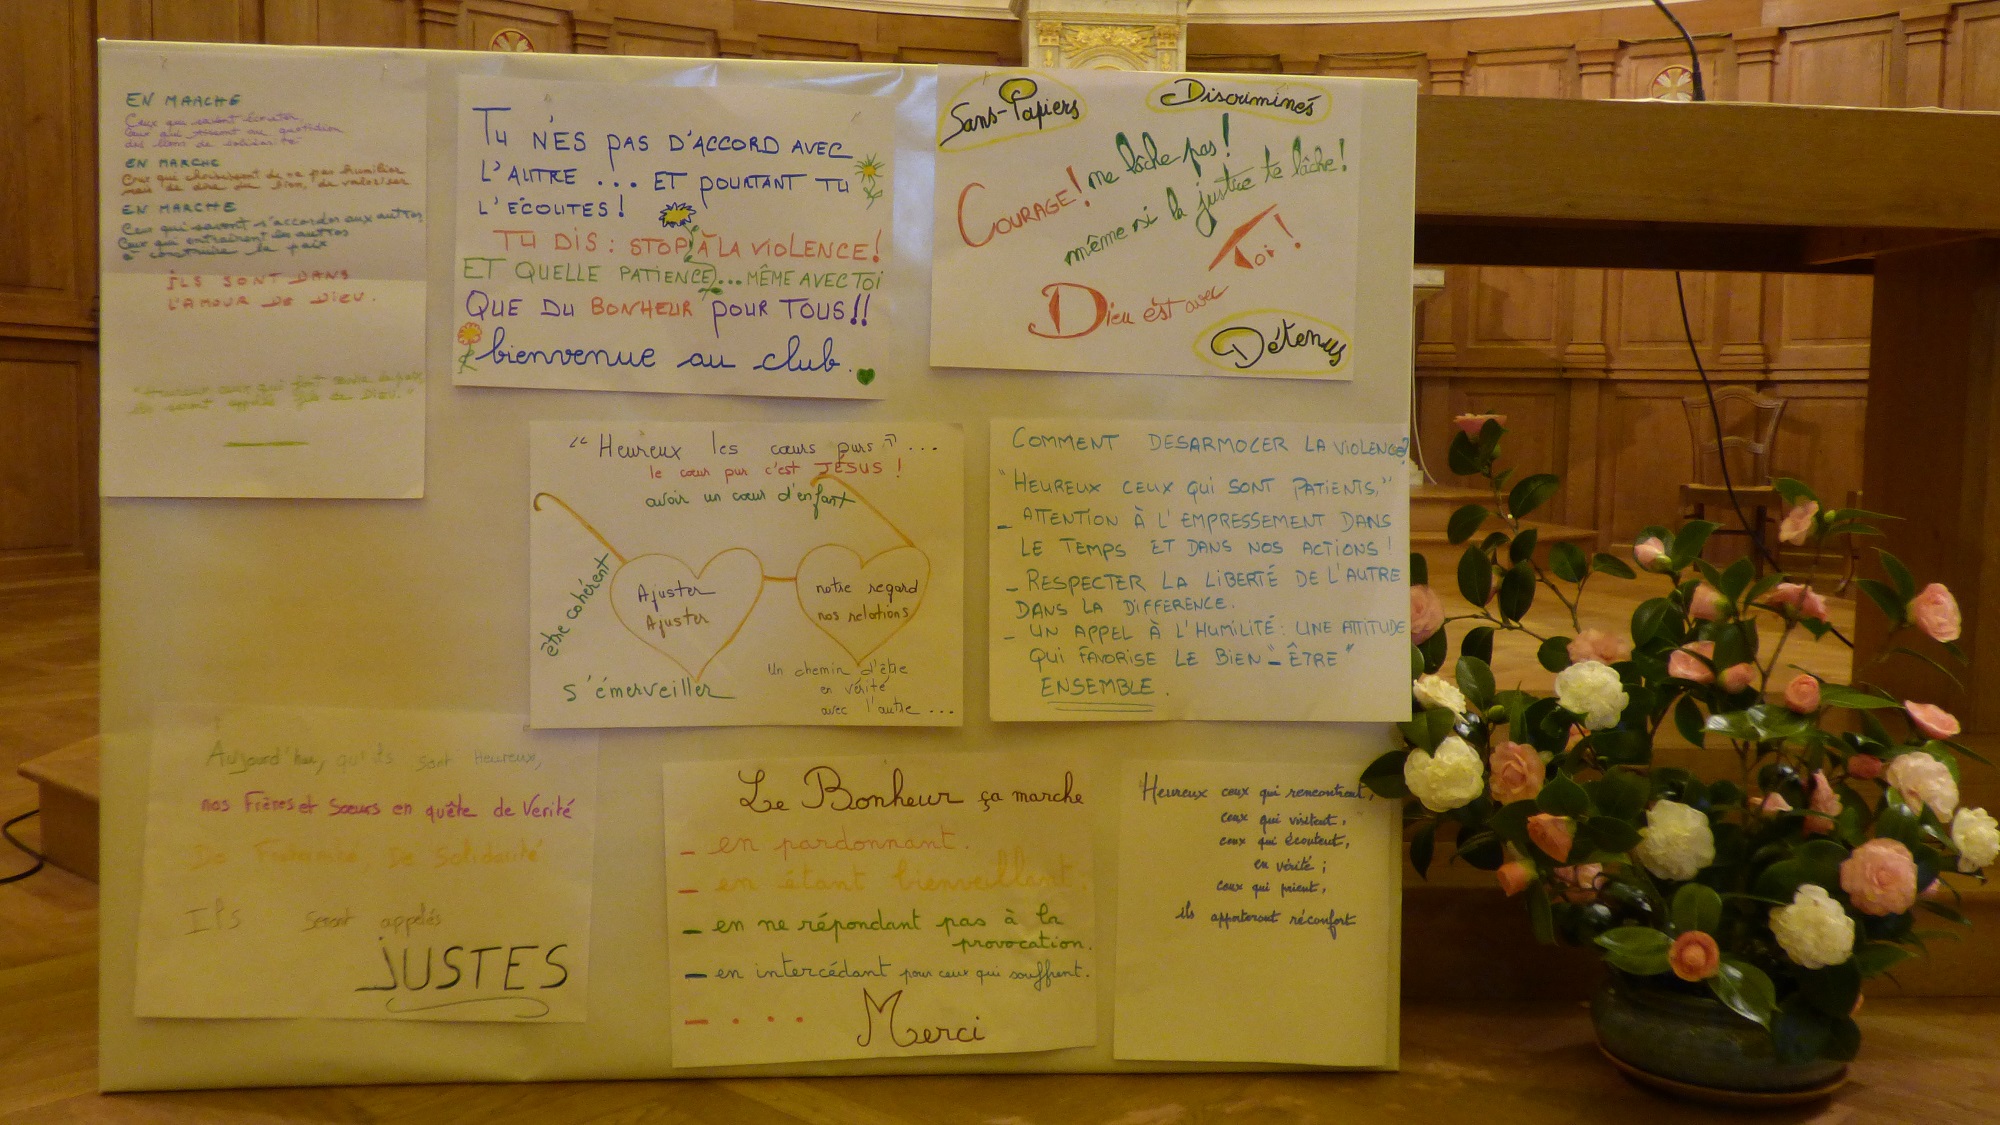 EN MARCHE
Ceux qui savent écouter,
Ceux qui tissent au quotidien
des liens de solidarité
EN MARCHE
Ceux qui choisissent de ne pas humilier
mais de dire du bien, de valoriser
EN MARCHE
Ceux qui savent s'accorder aux autres
Ceux qui entraînent les autres
à construire la paix
ILS SONT DANS
L'AMOUR DE DIEU.
ils seront appelés fils de Dieu."
TU N'ES PAS D'ACCORD AVEC
L'AUTRE ... ET POURTANT TU
L'ÉCOUTES !
TU DIS : STOP À LA VIOLENCE !
ET QUELLE PATIENCE... MÊME AVEC TOI
QUE DU BONHEUR POUR TOUS !!
bienvenue au club.
Sans-Papiers
Discriminés
COURAGE ! ne lâche pas !
même si la justice te lâche !
Dieu est avec Toi !
Détenus
"Heureux les cœurs purs" ...
le cœur pur c'est JÉSUS !
avoir un cœur d'enfant
être cohérent
Ajuster
Ajuster
notre regard
nos relations
s'émerveiller
Un chemin d'être
en vérité
avec l'autre ...
COMMENT DESARMOCER LA VIOLENCE ?
"HEUREUX CEUX QUI SONT PATIENTS,"
- ATTENTION À L'EMPRESSEMENT DANS
LE TEMPS ET DANS NOS ACTIONS !
- RESPECTER LA LIBERTÉ DE L'AUTRE
DANS LA DIFFERENCE.
- UN APPEL À L'HUMILITÉ : UNE ATTITUDE
QUI FAVORISE LE BIEN "-ÊTRE"
ENSEMBLE.
Aujourd'hui, qu'ils sont Heureux,
nos Frères et Sœurs en quête de Verité
De Fraternité, De Solidarité
Ils seront appelés
JUSTES
Le Bonheur ça marche
- en pardonnant.
- en étant bienveillant.
- en ne répondant pas à la
provocation.
- en intercédant pour ceux qui souffrent.
- . . .
Merci
Heureux ceux qui rencontrent,
ceux qui visitent,
ceux qui écoutent,
en vérité ;
ceux qui prient,
ils apporteront réconfort